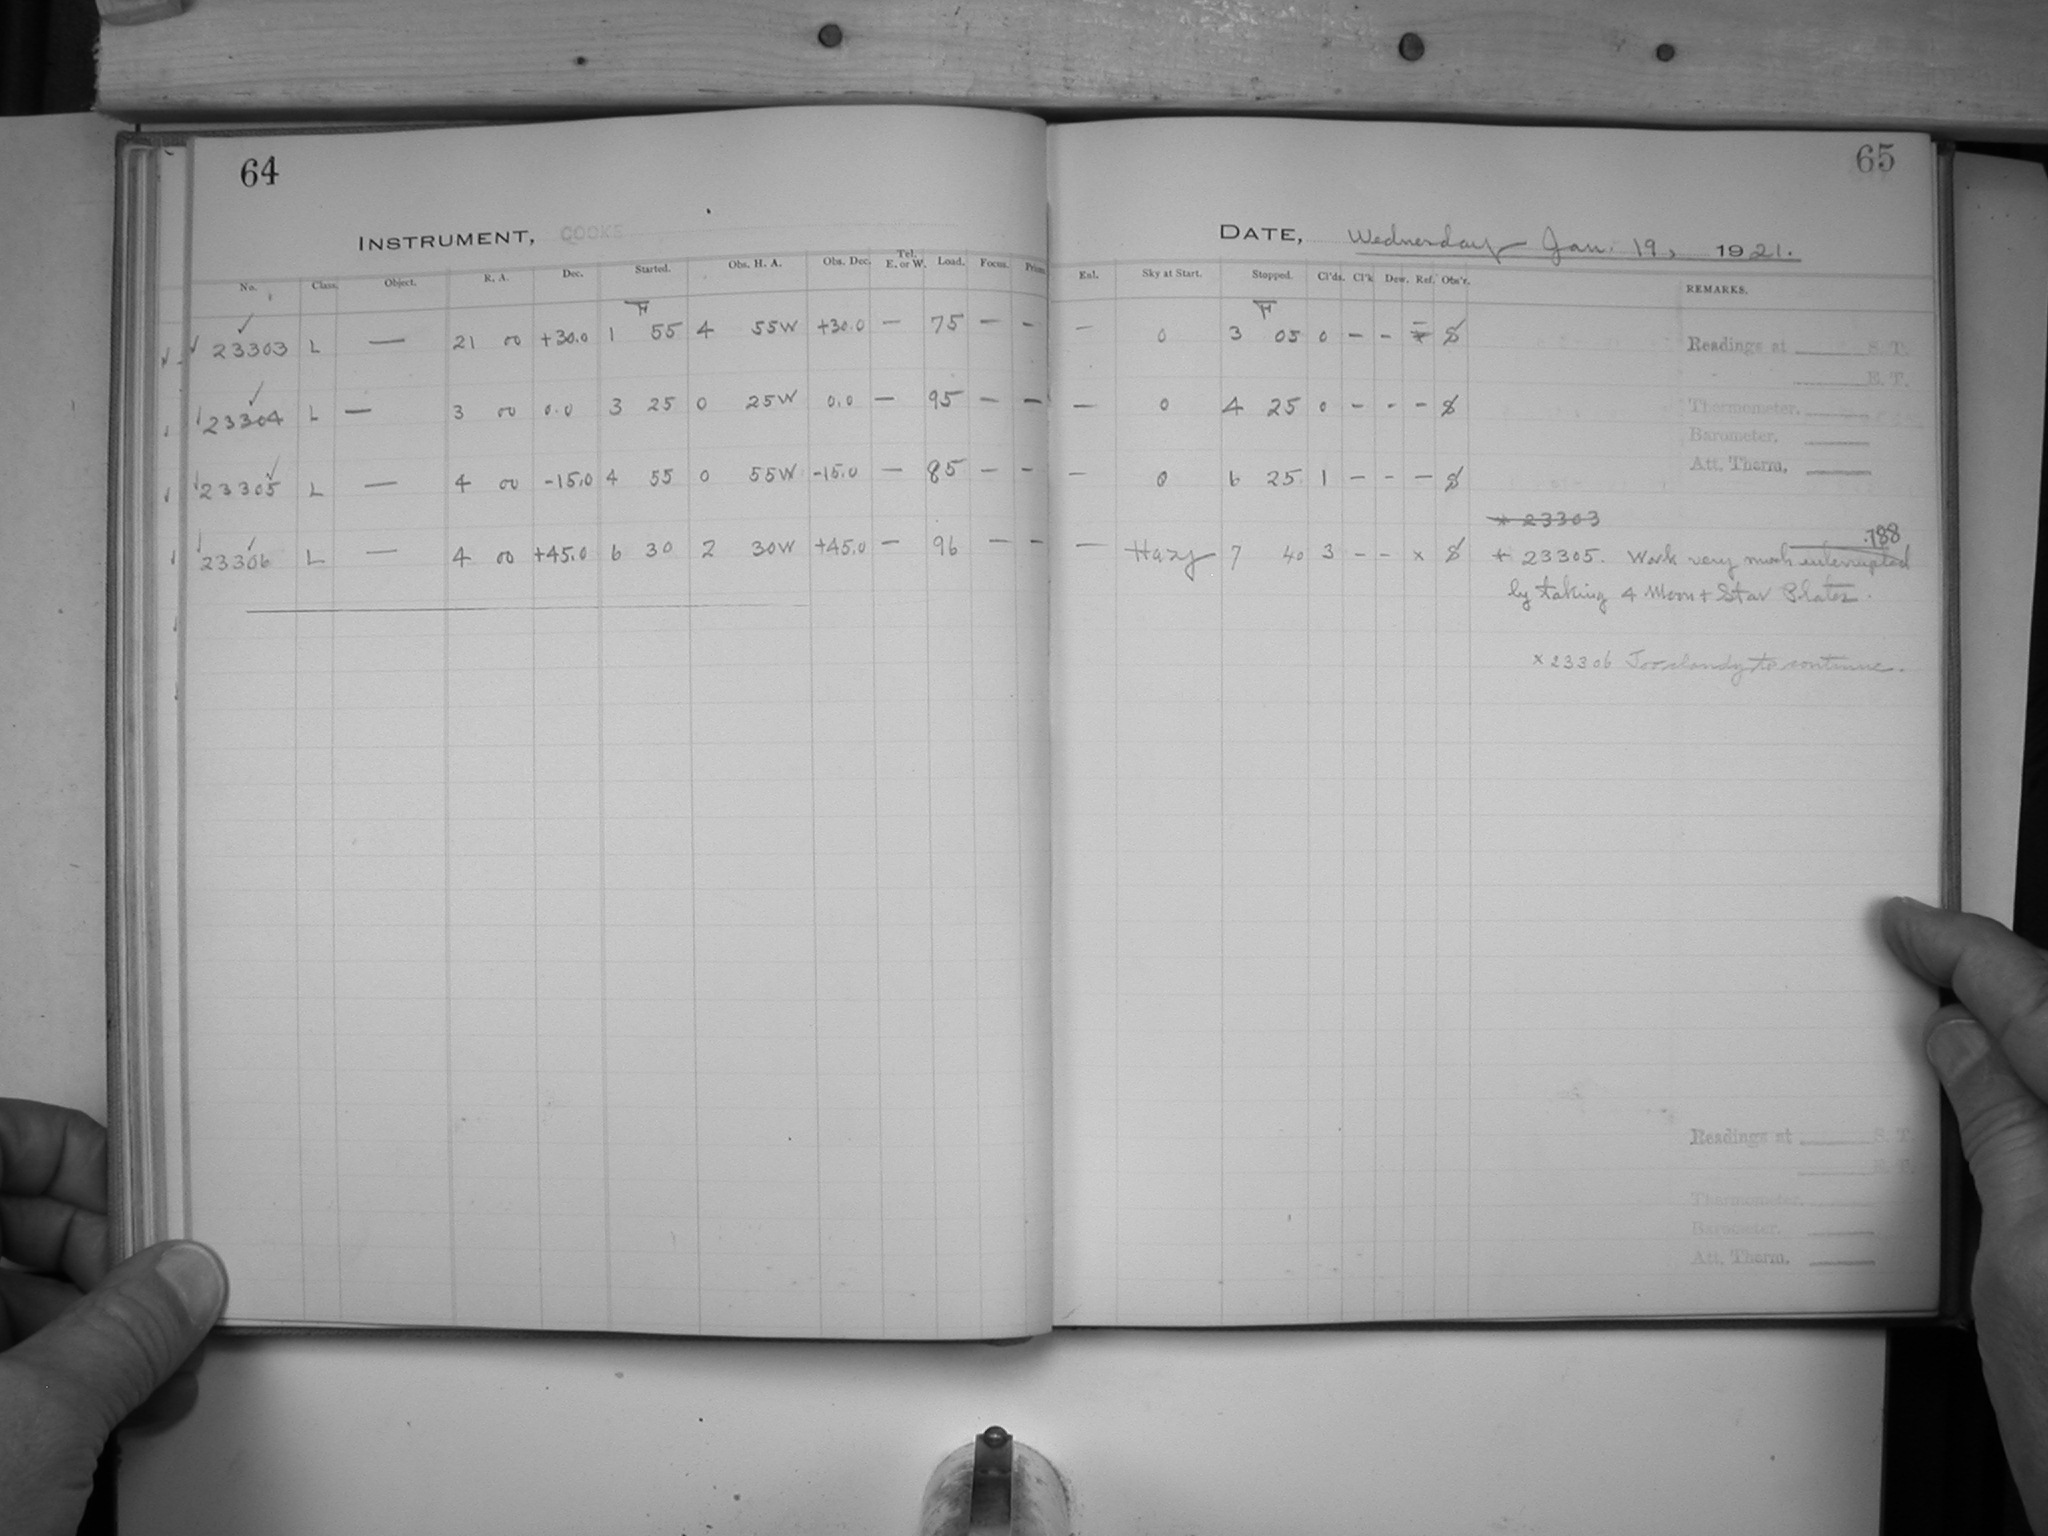 64
INSTRUMENT, COOKE
No. Class. Object. R. A. Dec. Started. Obs. H. A. Obs. Dec. Tel. E. or W. Load. Focus. Prism
23303 L — 21 00 +30.0 1 55 4 55W +30.0 — 75 — —
23304 L — 3 00 0.0 3 25 0 25W 0.0 — 95 — —
23305 L — 4 00 -15.0 4 55 0 55W -15.0 — 85 — —
23306 L — 4 00 +45.0 6 30 2 30W +45.0 — 96 — —
65
DATE, Wednesday Jan. 19, 1921.
Enl. Sky at Start. Stopped. Cl'ds. Cl'k Dew. Ref. Obs'r. REMARKS.
— 0 3 05 0 — —
— 0 4 25 0 - - -
— 0 6 25 1 — - —
— Hazy 7 40 3 - - x
Readings at S. T.
E. T.
Thermometer.
Barometer.
Att. Therm.
* 23303
.788
+ 23305. Work very much interrupted
by taking 4 Moon + Star Plates.
x 23306 Too cloudy to continue.
Readings at S. T.
E. T.
Thermometer.
Barometer.
Att. Therm.